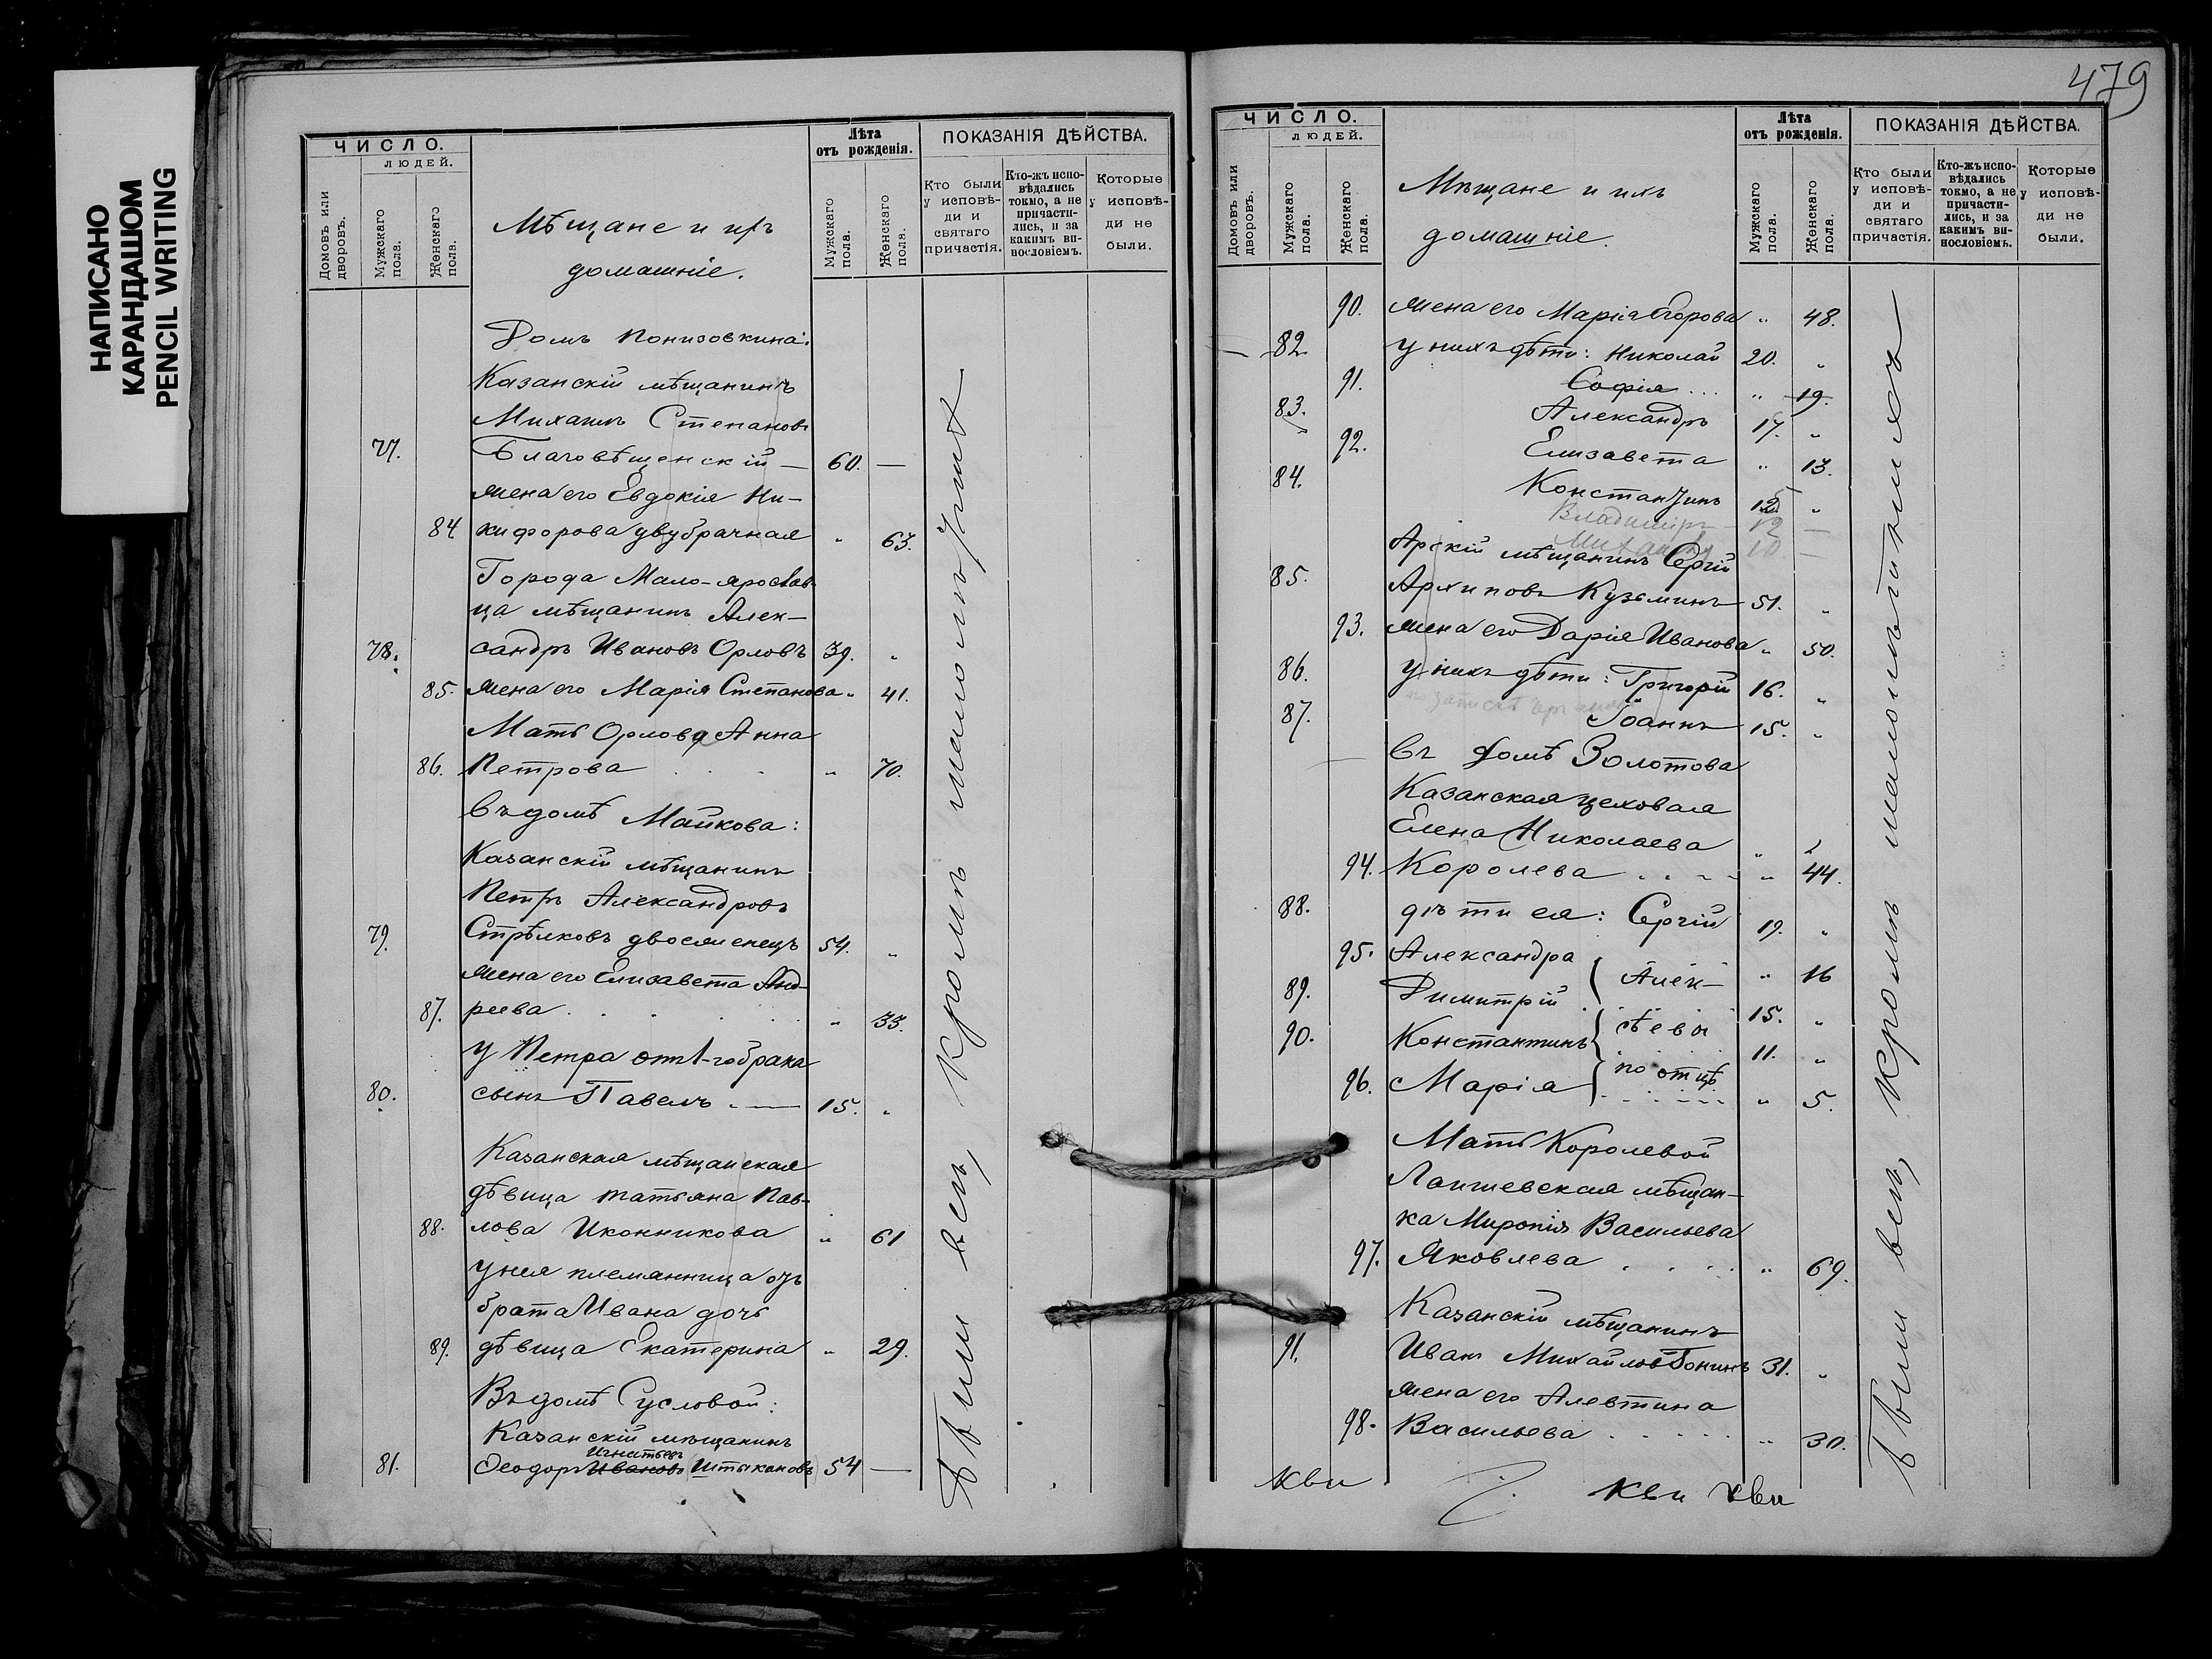 НАПИСАНО
КАРАНДАШОМ
PENCIL WRITING
ЧИСЛО.
ЛЮДЕЙ.
Домовъ или дворовъ.
Мужскаго пола.
Женскаго пола.
Мѣщане и ихъ
домашніе.
Лѣта
отъ рожденія.
Мужскаго пола.
Женскаго пола.
ПОКАЗАНІЯ ДѢЙСТВА.
Кто были у исповѣ-ди и святаго причастія.
Кто-жъ испо-вѣдались токмо, а не причасти-лись, и за какимъ ви-нословіемъ.
Которые у исповѣ-ди не были.
Домъ Понизовкина:
Казанскій мѣщанинъ
Михаилъ Степановъ
77. Благовѣщенскій — 60. —
жена его Евдокія Ни-
84 кифорова двубрачная „ 63.
Города Мало-ярослав-
ца мѣщанинъ Алек-
78. сандръ Ивановъ Орловъ 39. „
85. жена его Марія Степанова „ 41.
Мать Орлова Анна
86. Петрова . . . „ 70.
Въ домѣ Майкова:
Казанскій мѣщанинъ
Петръ Александровъ
79. Стрѣлковъ двоеженецъ 54. „
жена его Елизавета Анд-
87. реева . . . . „ 33.
у Петра отъ 1-го брака
80. сынъ Павелъ . — 15. „
Казанская мѣщанская
дѣвица Татьяна Пав-
88. лова Иконникова „ 61
у нея племянница отъ
брата Ивана дочь
89. дѣвица Екатерина „ 29.
Въ домѣ Сусловой:
Казанскій мѣщанинъ
Игнатьевъ
81. Ѳеодоръ Ивановъ Штыкановъ 54 —
Были всѣ, кромѣ малолѣтнихъ
479
ЧИСЛО.
ЛЮДЕЙ.
Домовъ или дворовъ.
Мужскаго пола.
Женскаго пола.
Мѣщане и ихъ
домашніе.
Лѣта
отъ рожденія.
Мужскаго пола.
Женскаго пола.
ПОКАЗАНІЯ ДѢЙСТВА.
Кто были у исповѣ-ди и святаго причастія.
Кто-жъ испо-вѣдались токмо, а не причасти-лись, и за какимъ ви-нословіемъ.
Которые у исповѣ-ди не были.
90. жена его Марія Егорова „ 48.
82. у нихъ дѣти: Николай 20. „
91. Софія ... „ 19.
83. Александръ 17. „
92. Елизавета „ 13.
84. Константинъ 12. „
Владиміръ — 12 —
Михаилъ 10 —
Арскій мѣщанинъ Сергій
85. Архиповъ Кузьминъ 51. „
93. жена его Дарія Иванова „ 50.
86. у нихъ дѣти: Григорій 16. „
87. Іоаннъ 15. „
Въ домѣ Золотова
Казанская цеховая
Елена Николаева
94. Королева . . . . „ 44.
88. дѣти ея: Сергій 19. „
95. Александра „ 16
89. Димитрій Алек- 15. „
90. Константинъ сѣевы 11. „
96. Марія по отцѣ „ 5.
Мать Королевой
Лаишевская мѣщан-
ка Миропія Васильева
97. Яковлева . . . . „ 69.
Казанскій мѣщанинъ
91. Иванъ Михайловъ Бонинъ 31. „
жена его Алевтина
98. Васильева . . . . . „ 30.
Были всѣ, кромѣ малолѣтнихъ